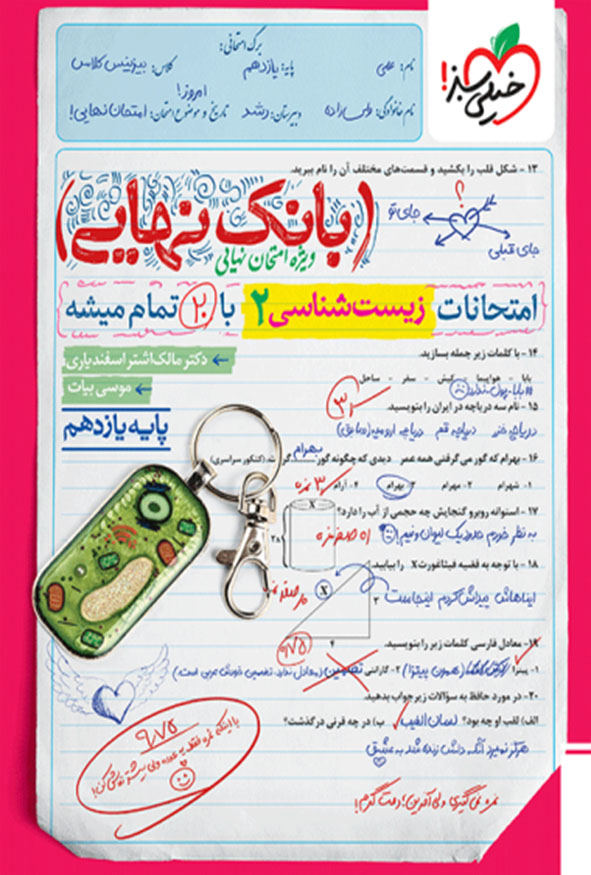 برگ امتحانی:
نام: علی
پایه: یازدهم
کلاس: بیزینس کلاس
امروز!
نام خانوادگی:
دبیرستان: رشد
تاریخ و موضوع امتحان: امتحان نهایی!
خیلی سبز!
۱۳ - شکل قلب را بکشید و قسمت‌های مختلف آن را نام ببرید.
؟
جای تو
جای قبلی
(بانک نهایی)
ویژه امتحان نهایی
امتحانات زیست‌شناسی ۲ با ۲۰ تمام میشه
دکتر مالک‌اشتر اسفندیاری،
موسی بیات
پایه یازدهم
۱۴ - با کلمات زیر جمله بسازید.
بابا - هواپیما - کیش - سفر - ساحل
بابا پول ندارد
۱۵ - نام سه دریاچه در ایران را بنویسید.
دریاچه خزر دریاچه قم دریاچه ارومیه (سابق)
بهرام
۱۶ - بهرام که گور می گرفتی همه عمر دیدی که چگونه گور گرفت. (کنکور سراسری)
۱. شهرام ۲. مهرام ۳. بهرام ۴. آرام
۳ نمره
۱۷ - استوانه روبرو گنجایش چه حجمی از آب را دارد؟
X
۲x
به نظر خودم حدود یک لیوان و نیم!
۱۸ - با توجه به قضیه فیثاغورث X را بیابید.
ایناهاش پیداش کردم اینجاست
X
۳
۴
۱۹ - معادل فارسی کلمات زیر را بنویسید.
۹/۷۵
۱- پیتزا (همون پیتزا) ۲- گارانتی تضمین
۲۰- در مورد حافظ به سؤالات زیر جواب بدهید.
الف) لقب او چه بود؟ لسان الغیب ب) در چه قرنی درگذشت؟
هرگز نمیرد آنکه دلش زنده شد به عشق
۹/۷۵
نمره نمی‌گیری ولی آفرین؛ دمت گرم!